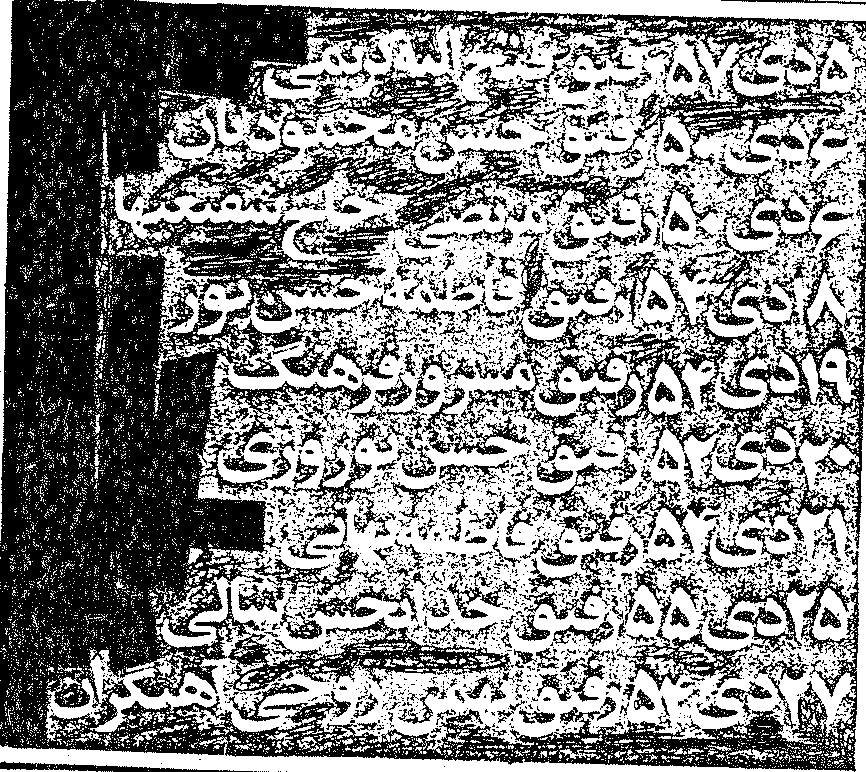 ۵ دی ۵۷ رفیق فتح‌الله کریمی
۶ دی ۵۰ رفیق حسن محمودیان
۶ دی ۵۰ رفیق مرتضی حاج شفیعیها
۱۸ دی ۵۴ رفیق فاطمه حسن‌پور
۱۹ دی ۵۴ رفیق مسرور فرهنگ
۲۰ دی ۵۲ رفیق حسن نوروزی
۲۱ دی ۵۴ رفیق فاطمه نهانی
۲۵ دی ۵۵ رفیق خدابخش سالی
۲۷ دی ۵۴ رفیق بهمن روحی آهنگران